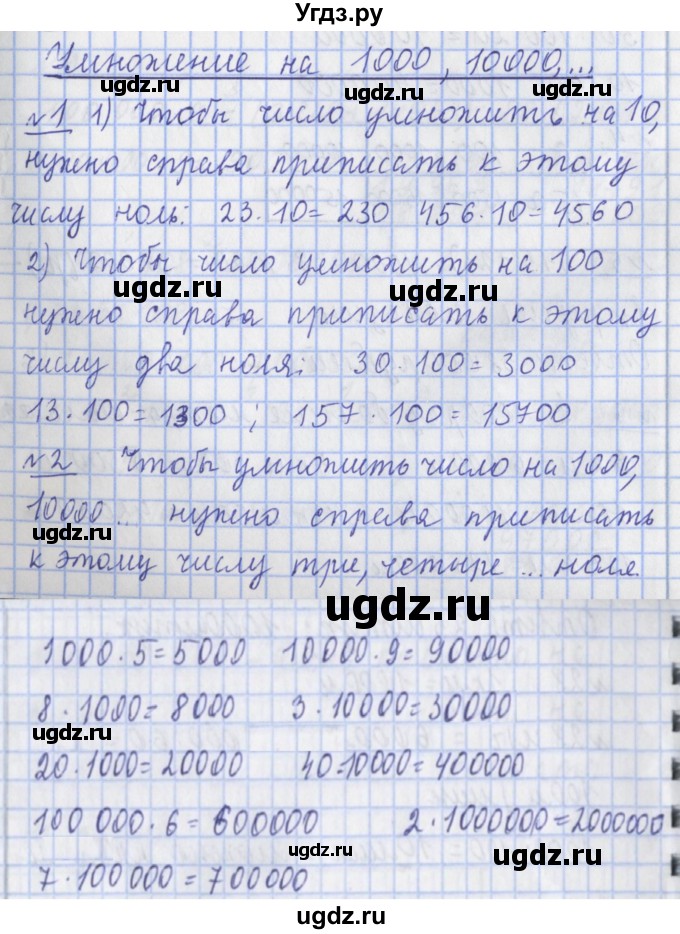 Угдз.ру
Умножение на 1000, 10000,...
ugdz.ru ugdz.ru
№1 1) Чтобы число умножить на 10,
нужно справа приписать к этому
числу ноль: 23·10=230 456·10=4560
2) Чтобы число умножить на 100
ugdz.ru ugdz.ru
нужно справа приписать к этому
числу два ноля: 30·100=3000
13·100=1300 ; 157·100=15700
№2 Чтобы умножить число на 1000,
10000... нужно справа приписать
ugdz.ru ugdz.ru
к этому числу три, четыре ... ноля
ugdz.ru
1000·5=5000 10000·9=90000
8·1000=8000 3·10000=30000
ugdz.ru
20·1000=20000 40·10000=400000
100 000·6=600000 2·1000000=2000000
ugdz.ru ugdz.ru
7·100000=700000
ugdz.ru ugdz.ru